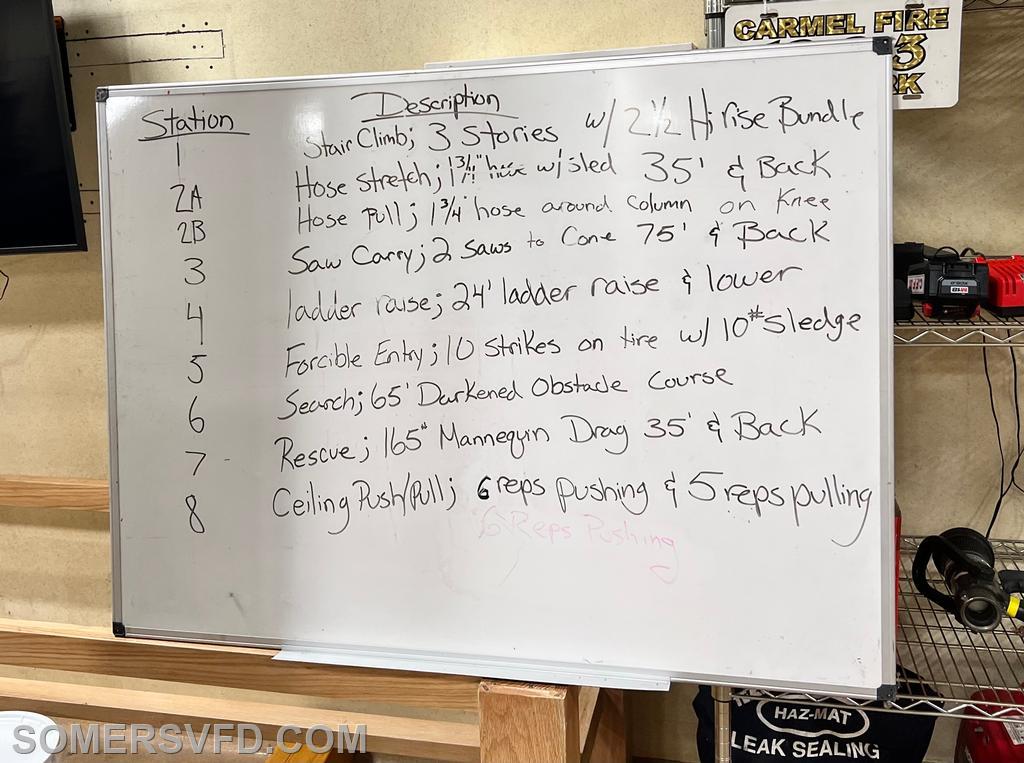 CARMEL FIRE
3
RK
Station Description
1 Stair Climb; 3 Stories w/ 2½ Hi rise Bundle
2A Hose Stretch; 1 3/4" hose w/ sled 35' & Back
2B Hose Pull; 1 3/4" hose around column on Knee
3 Saw Carry; 2 saws to Cone 75' & Back
4 ladder raise; 24' ladder raise & lower
5 Forcible Entry; 10 Strikes on tire w/ 10# Sledge
6 Search; 65' Darkened Obstacle Course
7 Rescue; 165# Mannequin Drag 35' & Back
8 Ceiling Push/Pull; 6 reps pushing & 5 reps pulling
6 Reps Pushing
HAZ-MAT
LEAK SEALING
SOMERSVFD.COM